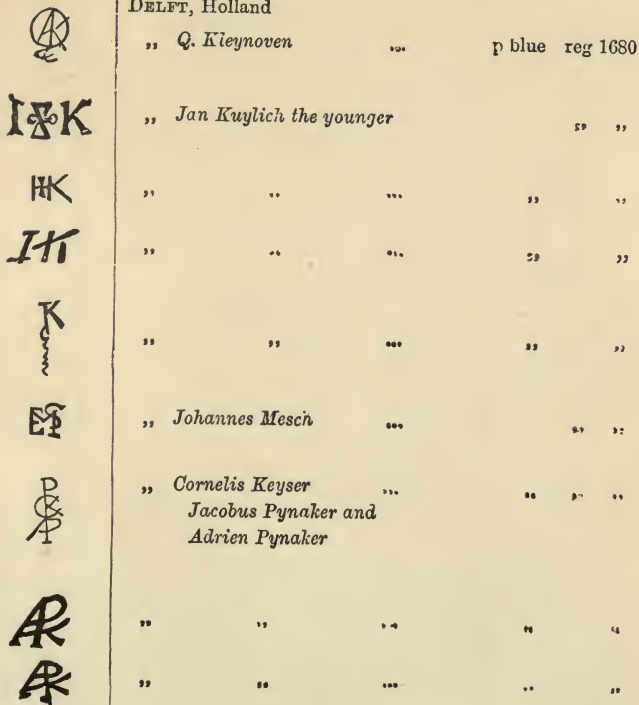 DELFT, Holland
„ Q. Kleynoven ... p blue reg 1680
„ Jan Kuylich the younger „ „
HK „ „ ... „ „
„ „ ... „ „
K „ „ ... „ „
„ Johannes Mesch ... „ „
„ Cornelis Keyser ... „ „ „
Jacobus Pynaker and
Adrien Pynaker
„ „ ... „ „
„ „ ... „ „